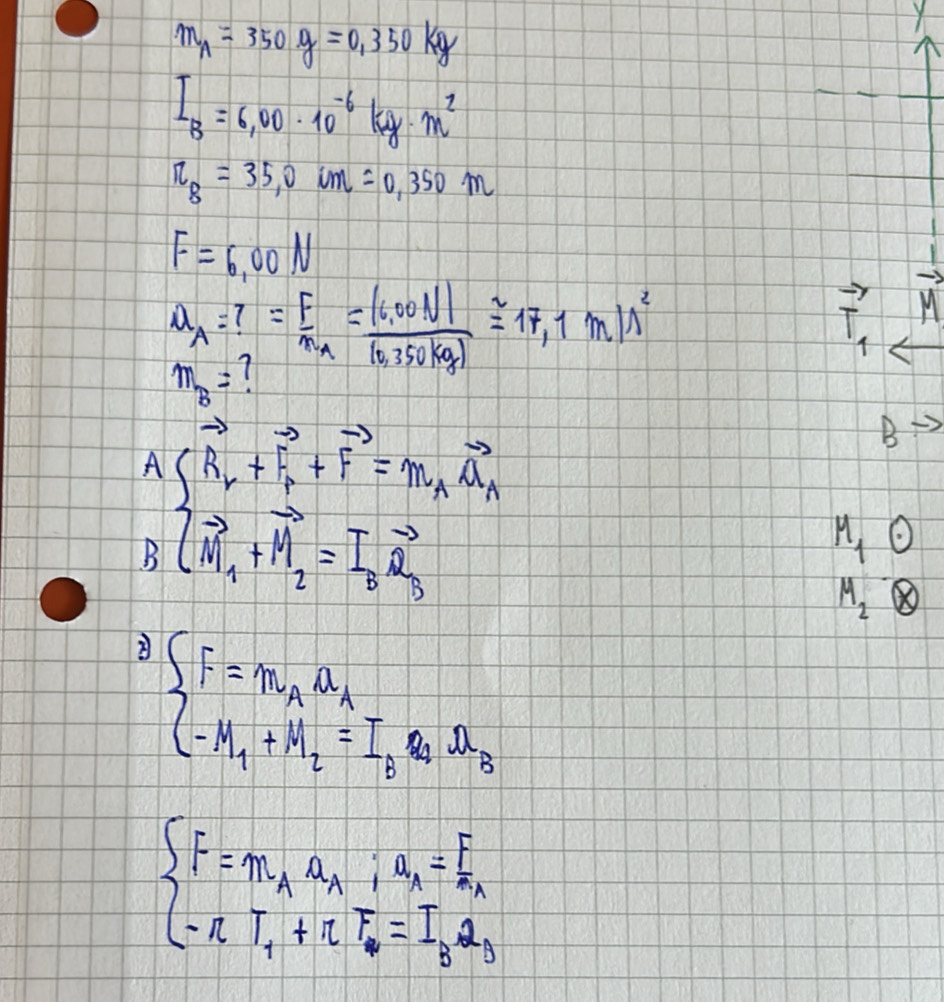 m_A = 350 g = 0,350 kg
I_B = 6,00 · 10^-6 kg · m^2
r_B = 35,0 cm = 0,350 m
F = 6,00 N
a_A = ? = F/m_A = (6,00 N)/(0,350 kg) ≅ 17,1 m/s^2
m_B = ?
A { R⃗_v + F⃗_p + F⃗ = m_A a⃗_A
B { M⃗_1 + M⃗_2 = I_B α⃗_B
z) { F = m_A a_A
{ -M_1 + M_2 = I_B a_B
{ F = m_A a_A ; a_A = F/m_A
{ -r T_1 + r F = I_B α_B
Y
T⃗_1
M⃗
B →
M_1 ⊙
M_2 ⊗